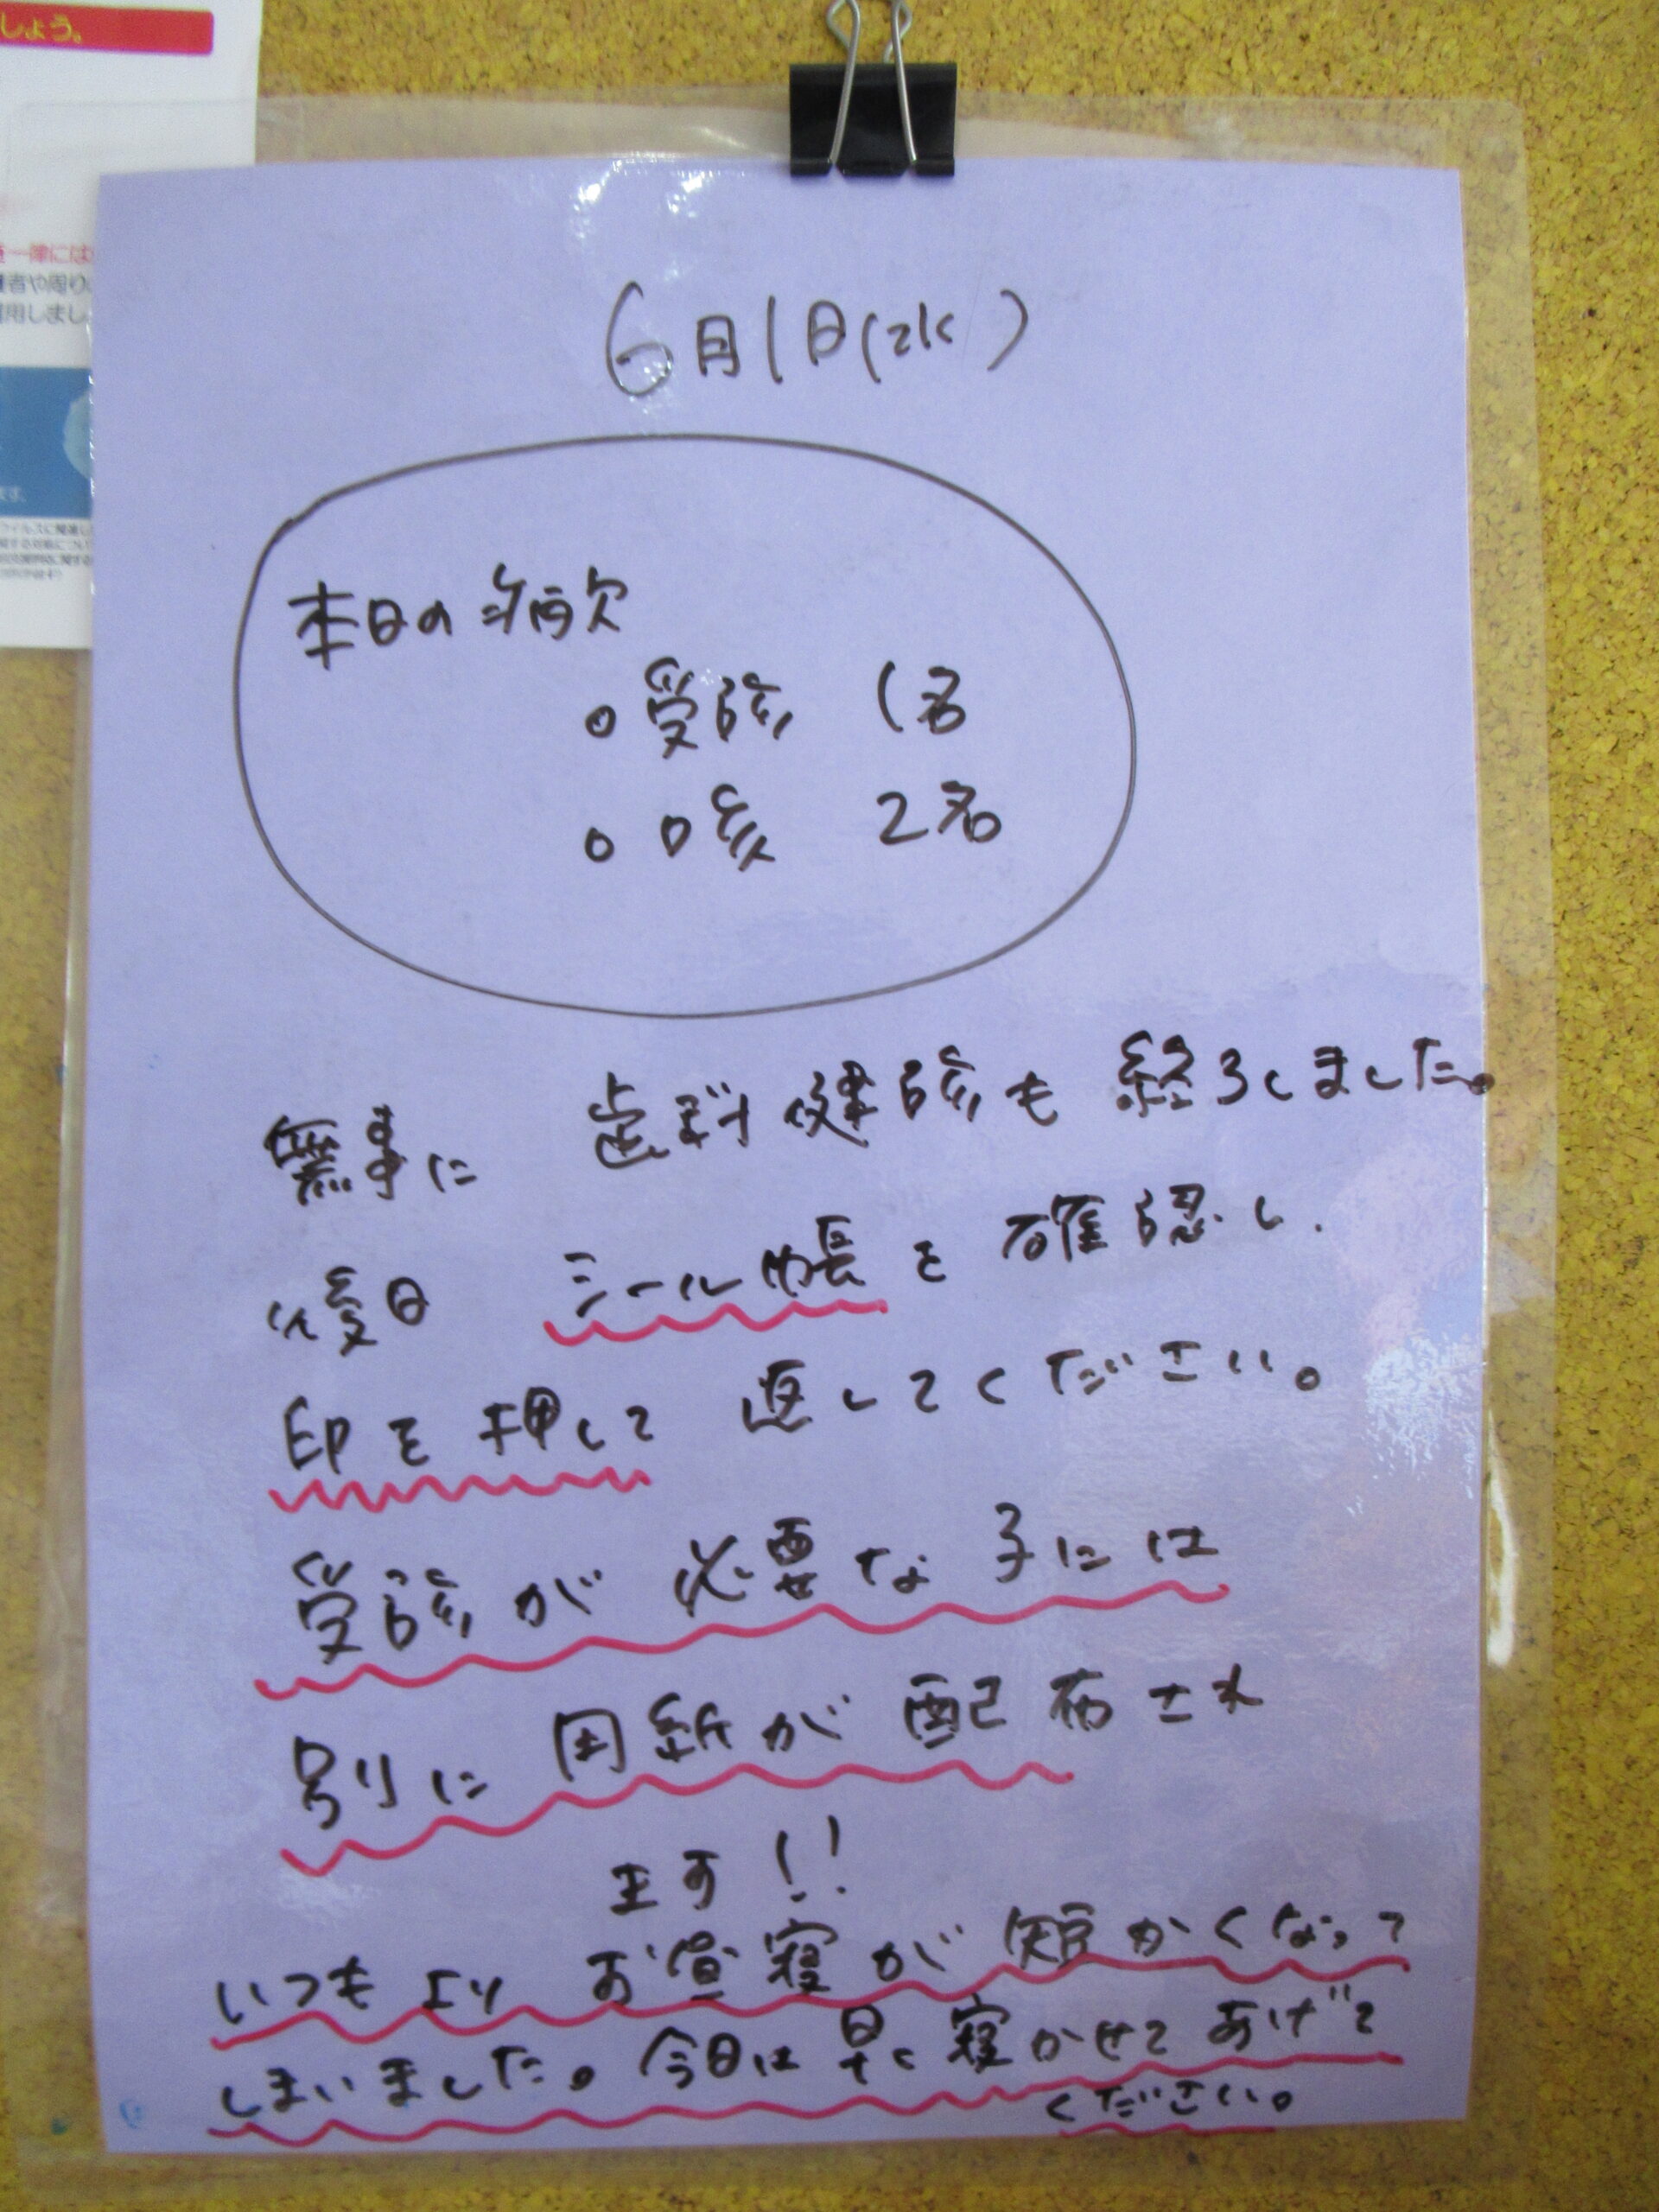 しょう。
6月1日(水)
本日の病欠
○受診 1名
○咳 2名
無事に 歯科健診も終了しました。
後日 シール帳を確認し、
印を押して 返してください。
受診が必要な子には
別に用紙が配布され
ます!!
いつもよりお昼寝が短かくなって
しまいました。今日は早く寝かせてあげて
ください。